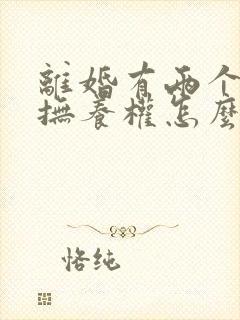 離婚有兩个
撫養權怎麼
恪纯